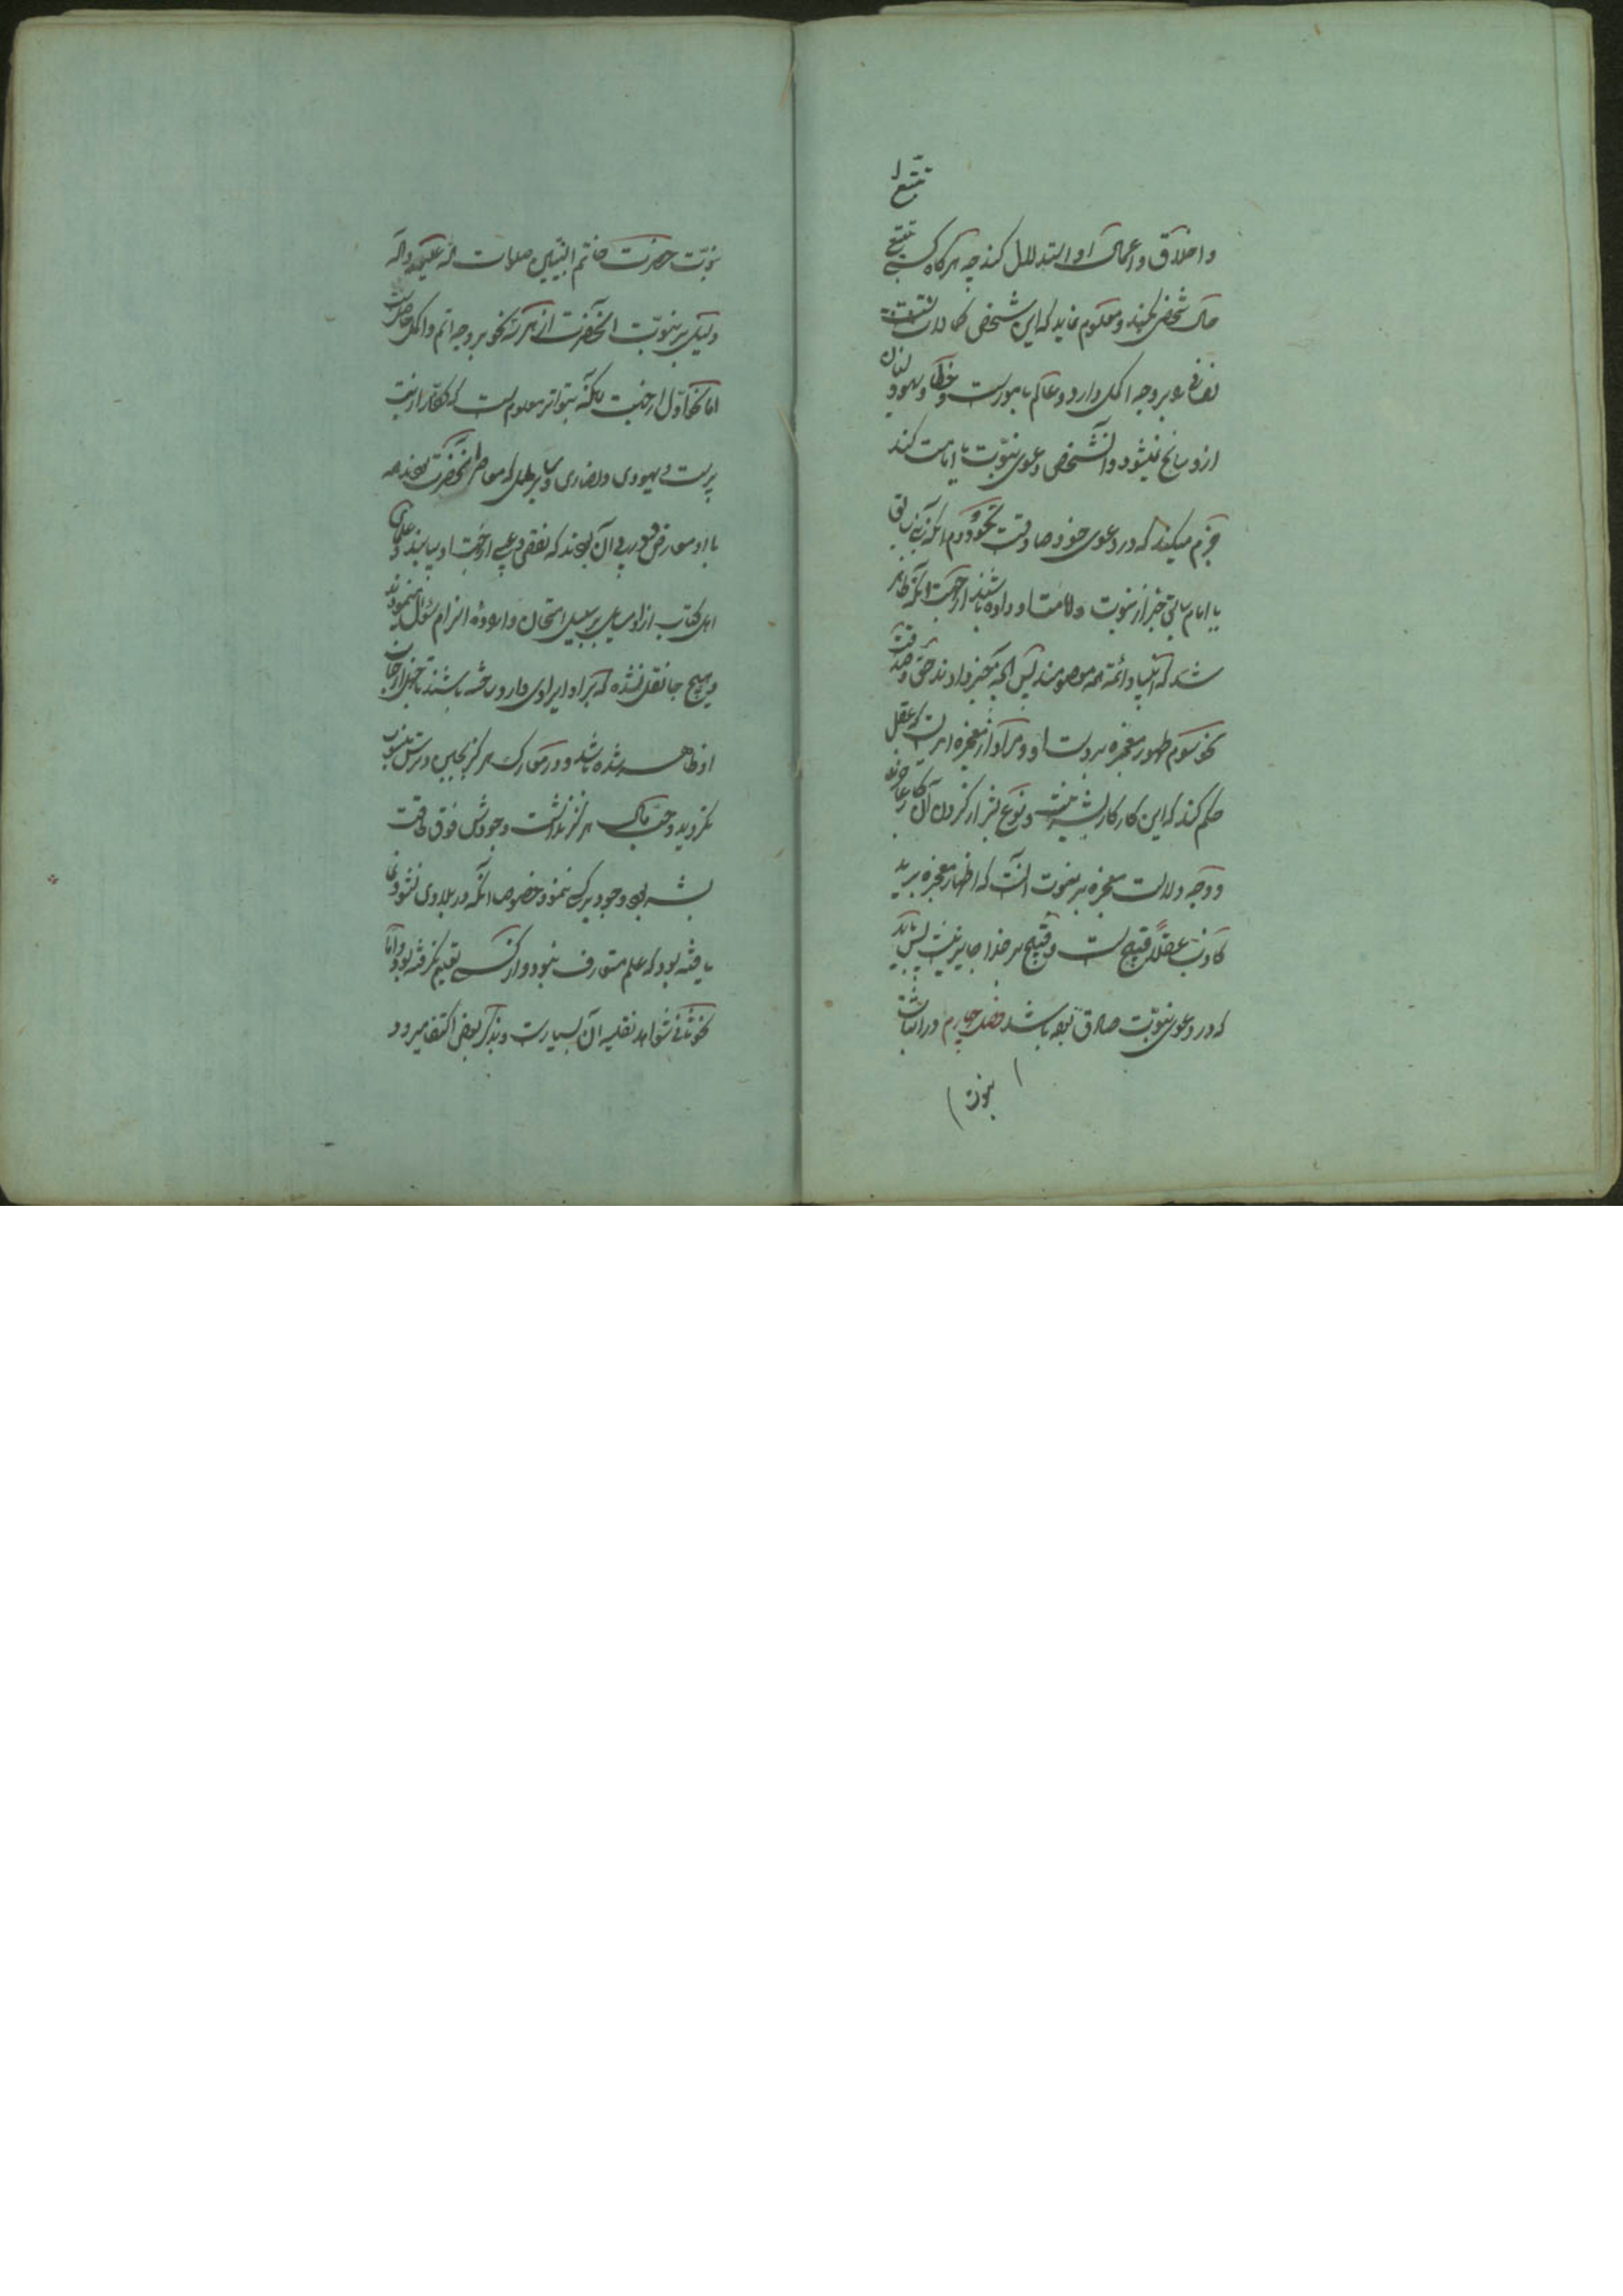 تتبع
و اخلاق و اعمال او استدلال کند چه هرگاه کسی تتبع
حال شخصی کند و معلوم نماید که این شخص کمالات
نفسانی بر وجه اکمل دارد و عالم بامورست و خطا و سهو و
ازو سانح نمیشود و آنشخص دعوی نبوت یا امامت کند
جزم میکند که در دعوی خود صادقست نحو دوم آنکه نبی سابق
یا امام سابق خبر از نبوت و امامت او داده باشند از جهت آنکه ظاهر
شد که انبیا و ائمه همه معصومند پس آنچه خبر دادند حق و صدقست
نحو سوم ظهور معجزه بر دست او و مراد از معجزه امریست که عقل
حکم کند که این کار کار بشر نیست و نوع بشر از کردن آن کار عاجزند
و وجه دلالت معجزه بر نبوت آنست که اظهار معجزه بر ید
کاذب عقلا قبیح است و قبیح بر خدا جایز نیست پس باید
که در دعوی نبوت صادق بوده باشد فصل چهارم در اثبات
نبوت
نبوت حضرت خاتم النبیین صلوات الله علیه و آله
و دلیل بر نبوت آنحضرت از هر سه نحو بر وجه اتم و اکمل حاصلست
اما نحو اول از جهت آنکه بتواتر معلوم است که کفار از بت
پرست و یهودی و نصاری و سایر ملل که معاصر آنحضرت بودند همه
با او معارض و در پی آن بودند که نقصی و عیبی از جهت او بیابند و علمای
اهل کتاب ازو مسایل بر سبیل امتحان و اراده الزام سئوال مینمودند
و هیچ جا نقل نشده که بر او ایرادی وارد ساخته باشند یا جهلی از جانب
او ظاهر شده باشد و در معارک هرگز بجبن و ترس منسوب
نگردید و حب مال هرگز نداشت و جودش فوق طاقت
بشر بود وجود بر کسی نمود خصوص آنکه در بلادی نشو و نما
یافته بود که علم متعارف نبود و از کسی تعلیم نگرفته بود و اما
نحو ثانی شواهد نقلیه آن بسیارست و بذکر بعضی اکتفا میرود